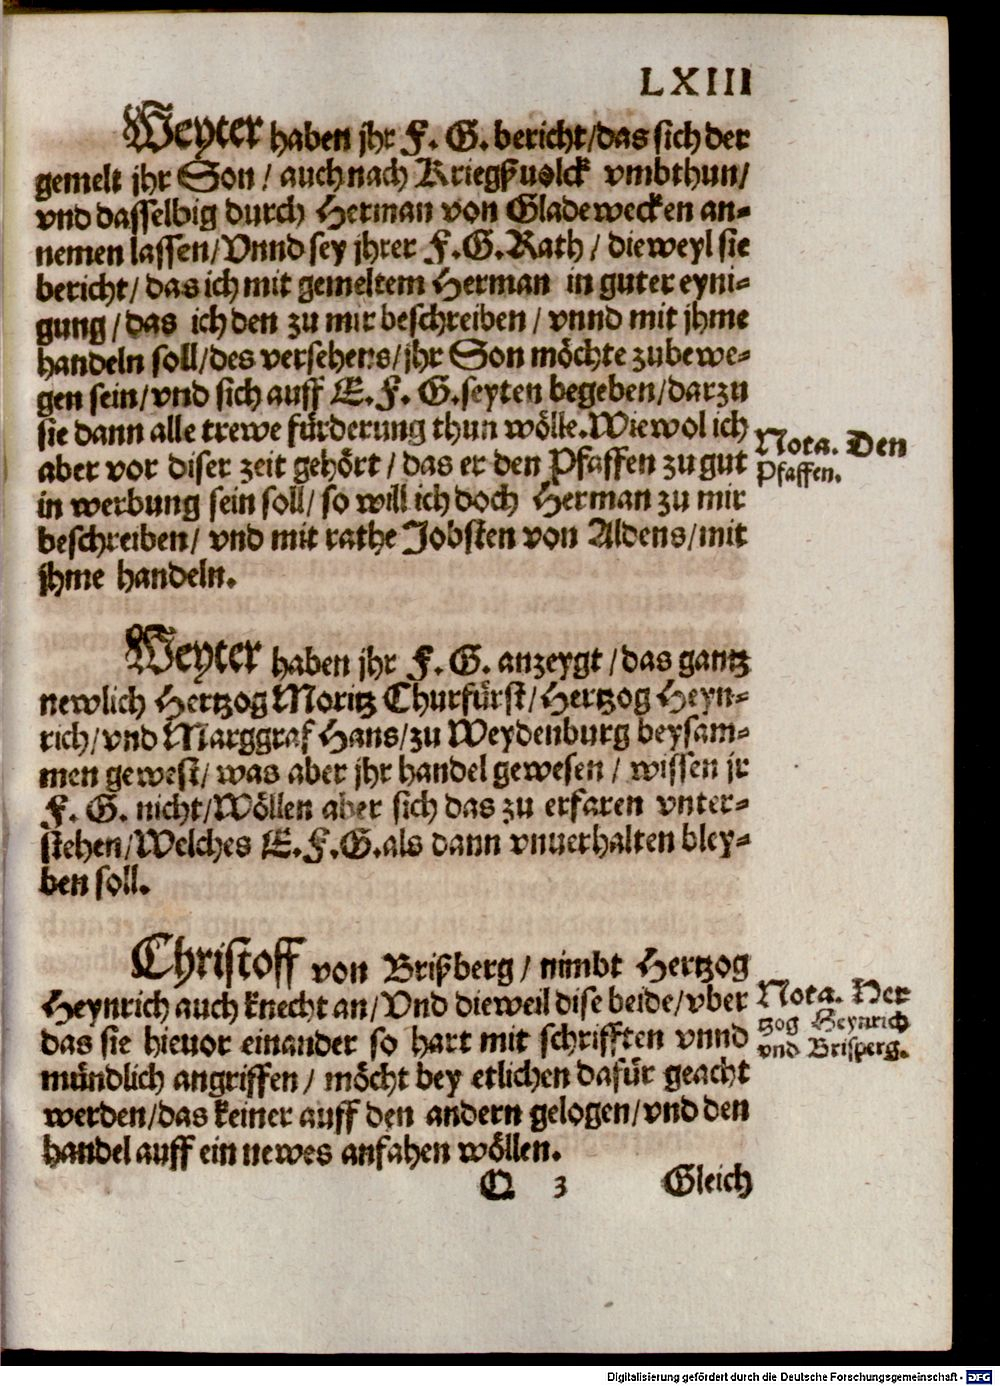 LXIII
Weyter haben jhr F. G. bericht/das sich der
gemelt jhr Son / auch nach Kriegßuolck vmbthun/
vnd dasselbig durch Herman von Gladewecken an-
nemen lassen/Vnnd sey jhrer F.G.Rath / dieweyl sie
bericht/ das ich mit gemeltem Herman in guter eyni-
gung /das ich den zu mir beschreiben / vnnd mit jhme
handeln soll/des versehens/jhr Son möchte zubewe-
gen sein/vnd sich auff E.F. G.seyten begeben/darzu
sie dann alle trewe fürderung thun wölle.Wiewol ich
aber vor diser zeit gehört / das er den Pfaffen zu gut
in werbung sein soll/ so will ich doch Herman zu mir
beschreiben/ vnd mit rathe Jobsten von Aldens/mit
jhme handeln.
Nota. Den
Pfaffen.
Weyter haben jhr F. G. anzeygt /das gantz
newlich Hertzog Moritz Churfürst/Hertzog Heyn-
rich/vnd Marggraf Hans/zu Weydenburg beysam-
men gewest/ was aber jhr handel gewesen / wissen jr
F. G. nicht/Wöllen aber sich das zu erfaren vnter-
stehen/Welches E.F.G.als dann vnuerhalten bley-
ben soll.
Christoff von Brißberg / nimbt Hertzog
Heynrich auch knecht an/Vnd dieweil dise beide/vber
das sie hieuor einander so hart mit schrifften vnnd
mündlich angriffen / möcht bey etlichen dafür geacht
werden/das keiner auff den andern gelogen/vnd den
handel auff ein newes anfahen wöllen.
Nota. Her
tzog Heynrich
vnd Brisperg.
Q 3 Gleich
Digitalisierung gefördert durch die Deutsche Forschungsgemeinschaft - DFG